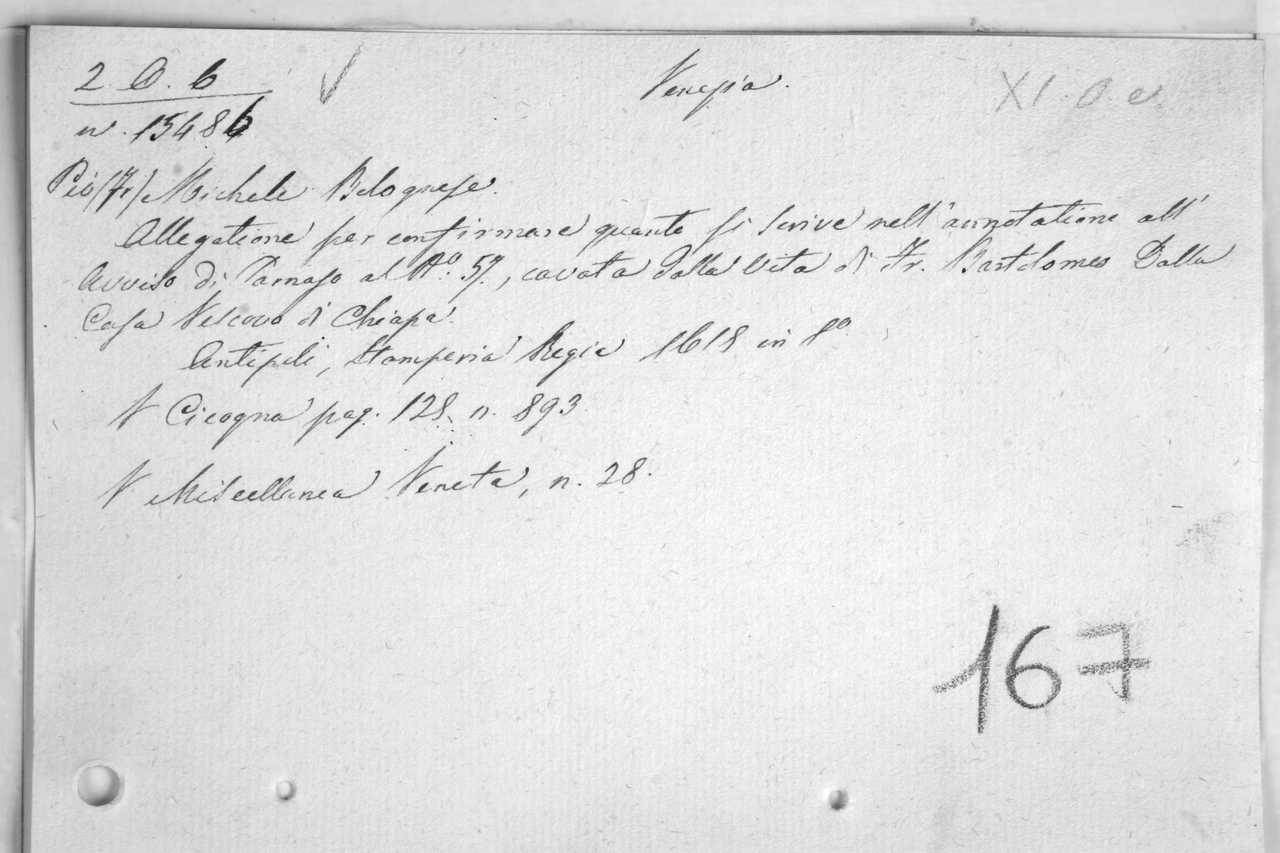 2. O. 6
n. 15486
Venezia.
XI. O. e.
Pio (Fr) Michele Bolognese.
Allegatione per confirmare quanto si scrive nell'annotatione all'
Avviso di Parnaso al No. 57, cavata dalla Vita di Fr. Bartolomeo Dalla
Casa Vescovo di Chiapa.
Antipoli, Stamperia Regia 1618 in 8o.
V Cicogna pag. 128. n. 893
V Miscellanea Veneta, n. 28.
167